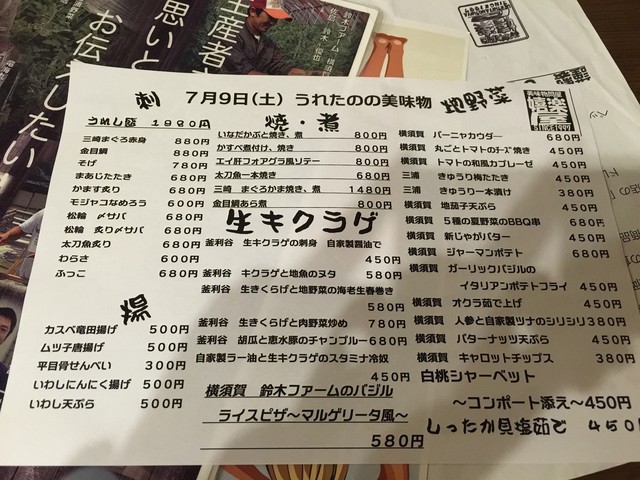 生産者
思いと
お伝えしたい!
刺 7月9日(土) うれたのの美味物 地野菜
SINCE1997
うれし盛 1980円
三崎まぐろ赤身 880円
金目鯛 880円
そげ 780円
まあじたたき 680円
かます炙り 680円
モジャコなめろう 600円
松輪 〆サバ 680円
松輪 炙り〆サバ 680円
太刀魚炙り 680円
わらさ 600円
ふっこ 680円
揚
カスベ竜田揚げ 500円
ムツ子唐揚げ 500円
平目骨せんべい 300円
いわしにんにく揚げ 500円
いわし天ぷら 500円
焼・煮
いなだかぶと焼き、煮 800円
かすべ煮付け、焼き 800円
エイ肝フォアグラ風ソテー 800円
太刀魚一本焼き 680円
三崎 まぐろかま焼き、煮 1480円
金目鯛あら煮 800円
生キクラゲ
釜利谷 生キクラゲの刺身 自家製醤油で
450円
釜利谷 キクラゲと地魚のヌタ 580円
釜利谷 生きくらげと地野菜の海老生春巻き
580円
釜利谷 生きくらげと肉野菜炒め 780円
釜利谷 胡瓜と恵水豚のチャンプルー 680円
自家製ラー油と生キクラゲのスタミナ冷奴
450円
横須賀 鈴木ファームのバジル
ライスピザ~マルゲリータ風~
580円
横須賀 バーニャカウダー 680円
横須賀 丸ごとトマトのチーズ焼き 450円
横須賀 トマトの和風カプレーゼ 450円
三浦 きゅうり梅たたき 450円
三浦 きゅうり一本漬け 380円
横須賀 地茄子天ぷら 450円
横須賀 5種の夏野菜のBBQ串 680円
横須賀 新じゃがバター 450円
横須賀 ジャーマンポテト 680円
横須賀 ガーリックバジルの
イタリアンポテトフライ 450円
横須賀 オクラ茹で上げ 450円
横須賀 人参と自家製ツナのシリシリ 380円
横須賀 バターナッツ天ぷら 450円
横須賀 キャロットチップス 380円
白桃シャーベット
~コンポート添え~450円
しったか貝塩茹で 450円